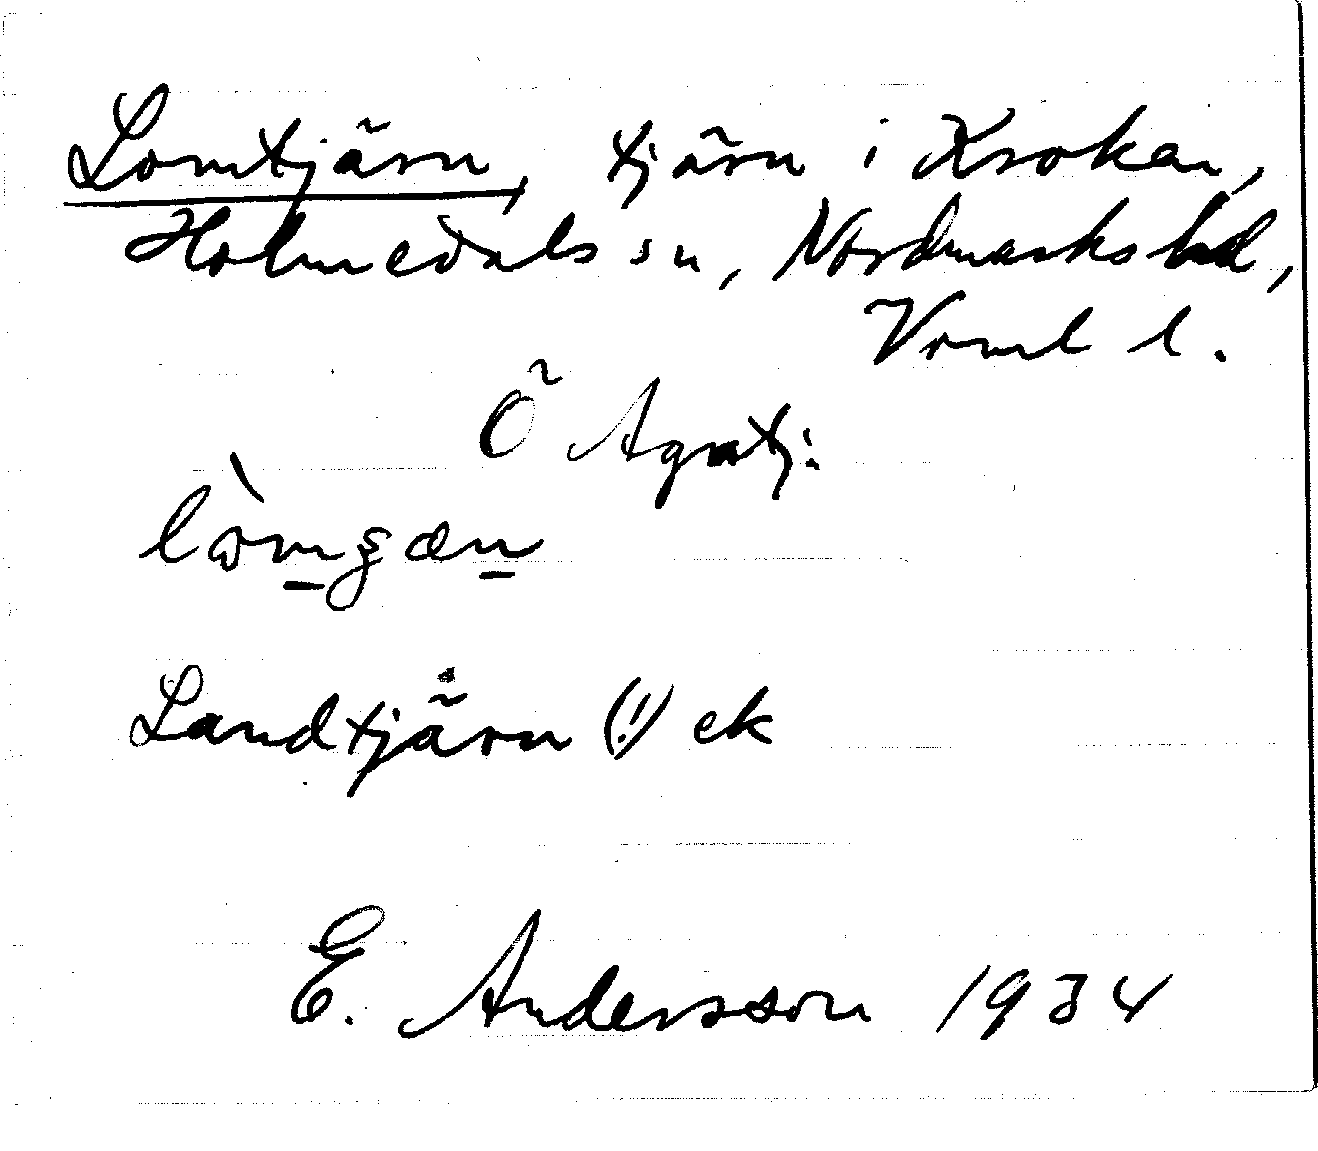 Lomtjärn, tjärn i Kroken,
Holmedals sn, Nordmarks hd,
Vrml l.
Ö Agntj.
Landtjärn (!) ek
E. Andersson 1934